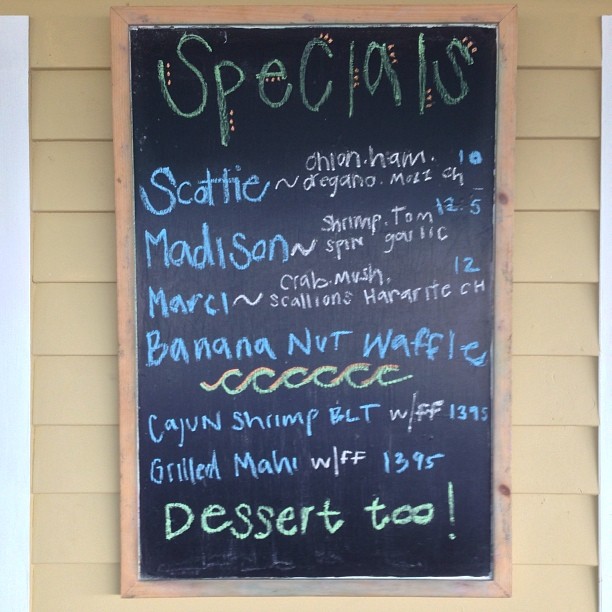 Specials
Scottie ~ onion.ham. 10
oregano. Mozz CH
Madison ~ shrimp.Tom 12.5
spin garlic
Marci ~ crab.mush. 12
scallions Hararite CH
Banana Nut Waffle
Cajun Shrimp BLT w/FF 1395
Grilled Mahi w/FF 1395
Dessert too!